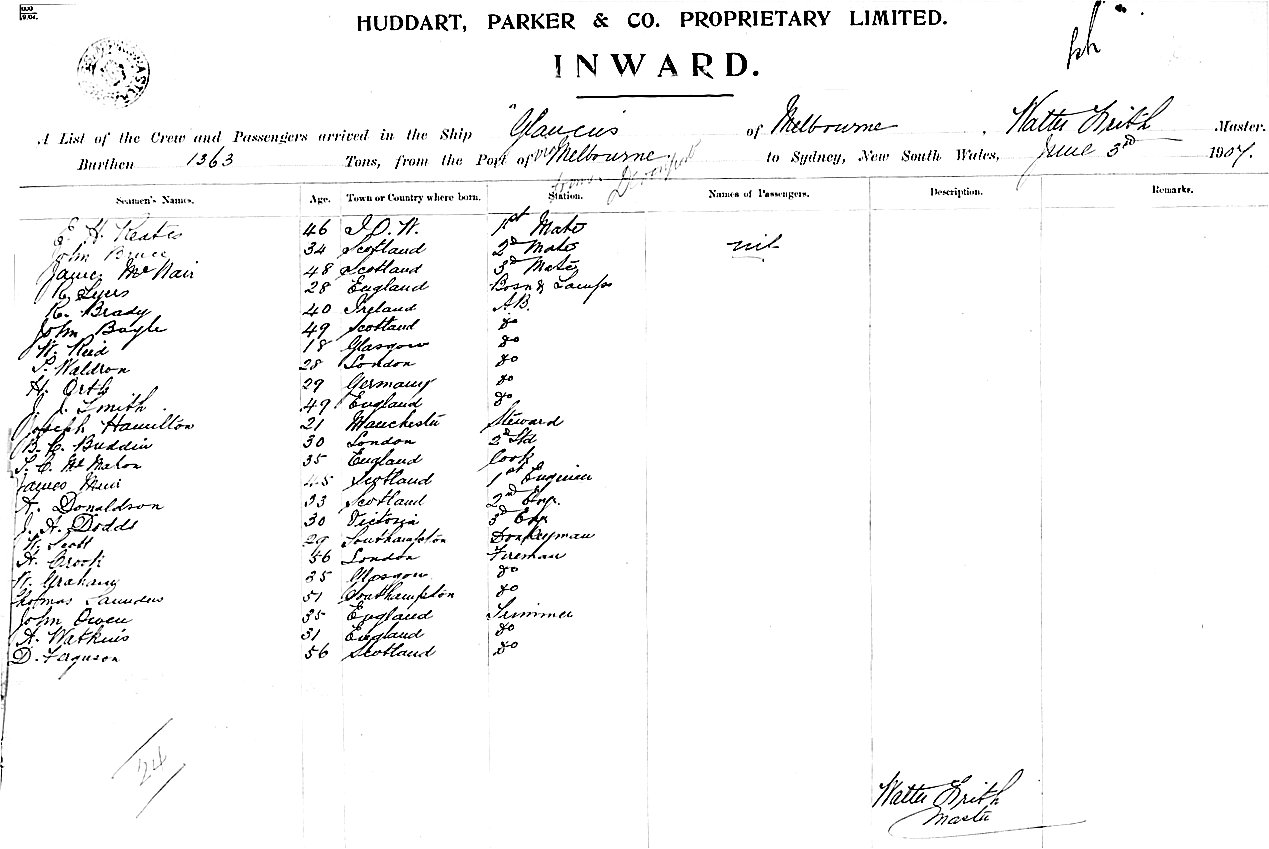 HUDDART, PARKER & CO. PROPRIETARY LIMITED.
INWARD.
A List of the Crew and Passengers arrived in the Ship "Glaucus of Melbourne, Walter Frith Master.
Burthen 1363 Tons, from the Port of Melbourne to Sydney, New South Wales, June 3rd 1907.
Devonport
Seamen's Names. Age. Town or Country where born. Station. Names of Passengers. Description. Remarks.
E. H. Keates 46 I.O.W. 1st Mate
John Bruce 34 Scotland 2d Mate nil
James McNair 48 Scotland 3d Mate
R. Lyers 28 England Bosn & Lamps
R. Brady 40 Ireland A.B.
John Boyle 49 Scotland do
W. Reid 18 Glasgow do
P. Waldron 28 London do
H. Orth 29 Germany do
J. J. Smith 49 England do
Joseph Hamilton 21 Manchester Steward
B. C. Buddin 30 London 2d Std
McMahon 35 England Cook
James Muir 45 Scotland 1st Engineer
A. Donaldson 33 Scotland 2nd Engr.
J. H. Dodds 30 Victoria 3d Engr
W. Scott 29 Southampton Donkeyman
H. Crook 56 London Fireman
W. Graham 25 Glasgow do
Thomas Saunders 51 Southampton do
John Owen 35 England Trimmer
A. Watkins 31 England do
D. Ferguson 56 Scotland do
24
Walter Frith
Master